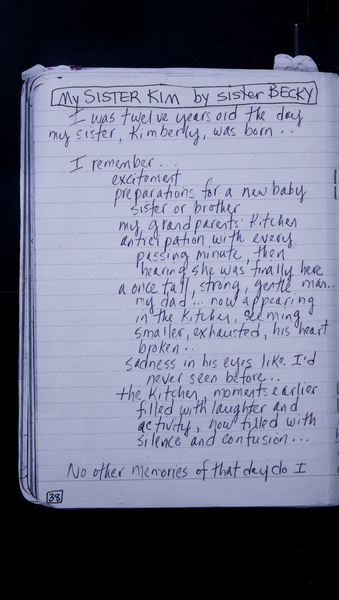 My SISTER KIM by sister BECKY
I was twelve years old the day
my sister, Kimberly, was born..
I remember...
excitement
preparations for a new baby
sister or brother
my grandparents' kitchen
anticipation with every
passing minute, then
hearing she was finally here
a once tall, strong, gentle man..
my dad... now appearing
in the kitchen, seeming
smaller, exhausted, his heart
broken..
sadness in his eyes like I'd
never seen before...
the kitchen, moments earlier
filled with laughter and
activity, now filled with
silence and confusion...
No other memories of that day do I
38